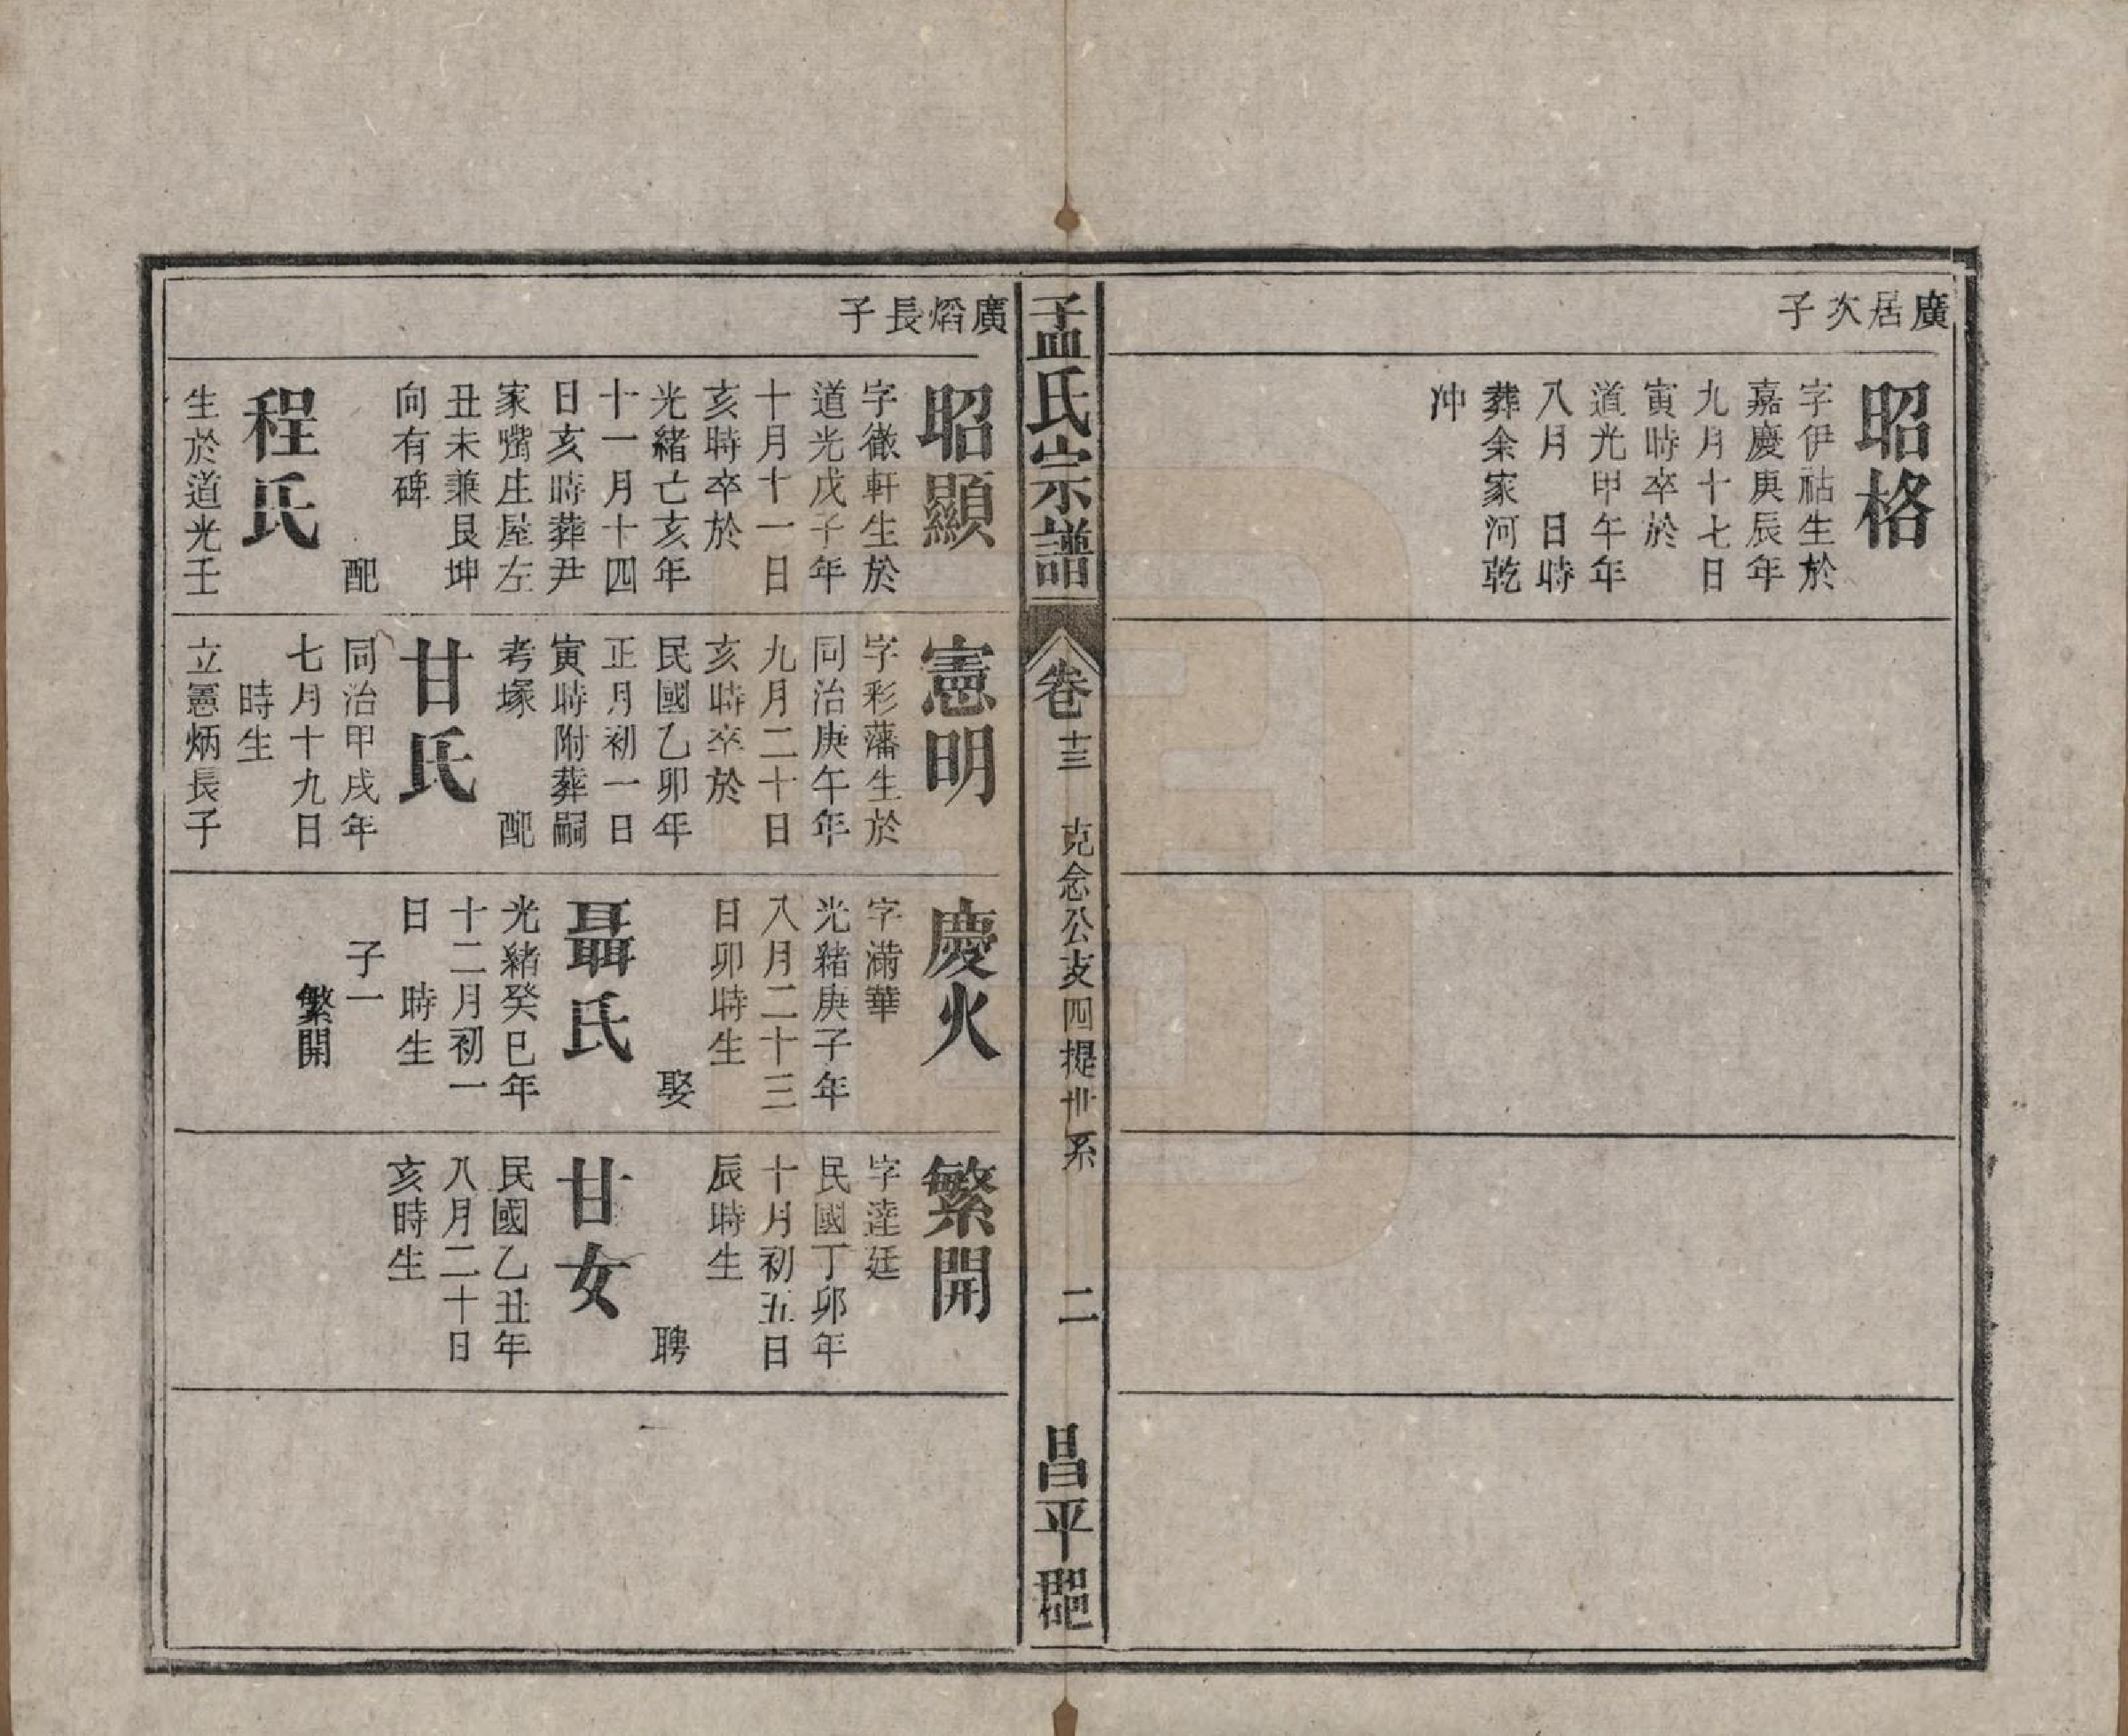 廣居次子
昭格
字伊祜生於
嘉慶庚辰年
九月十七日
寅時卒於
道光甲午年
八月　日時
葬余家河乾
冲
孟氏宗譜
卷十三
克念公支四提世系
二
昌平郡
廣熖長子
昭顯
字徹軒生於
道光戊子年
十月十一日
亥時卒於
光緒亡亥年
十一月十四
日亥時葬尹
家嘴庄屋左
丑未兼艮坤
向有碑
配
程氏
生於道光壬
憲明
字彩藩生於
同治庚午年
九月二十日
亥時卒於
民國乙卯年
正月初一日
寅時附葬嗣
考塚　配
甘氏
同治甲戌年
七月十九日
時生
立憲炳長子
慶火
字滿華
光緒庚子年
八月二十三
日卯時生
娶
聶氏
光緒癸巳年
十二月初一
日　時生
子一
繁開
繁開
字達廷
民國丁卯年
十月初五日
辰時生
聘
甘女
民國乙丑年
八月二十日
亥時生